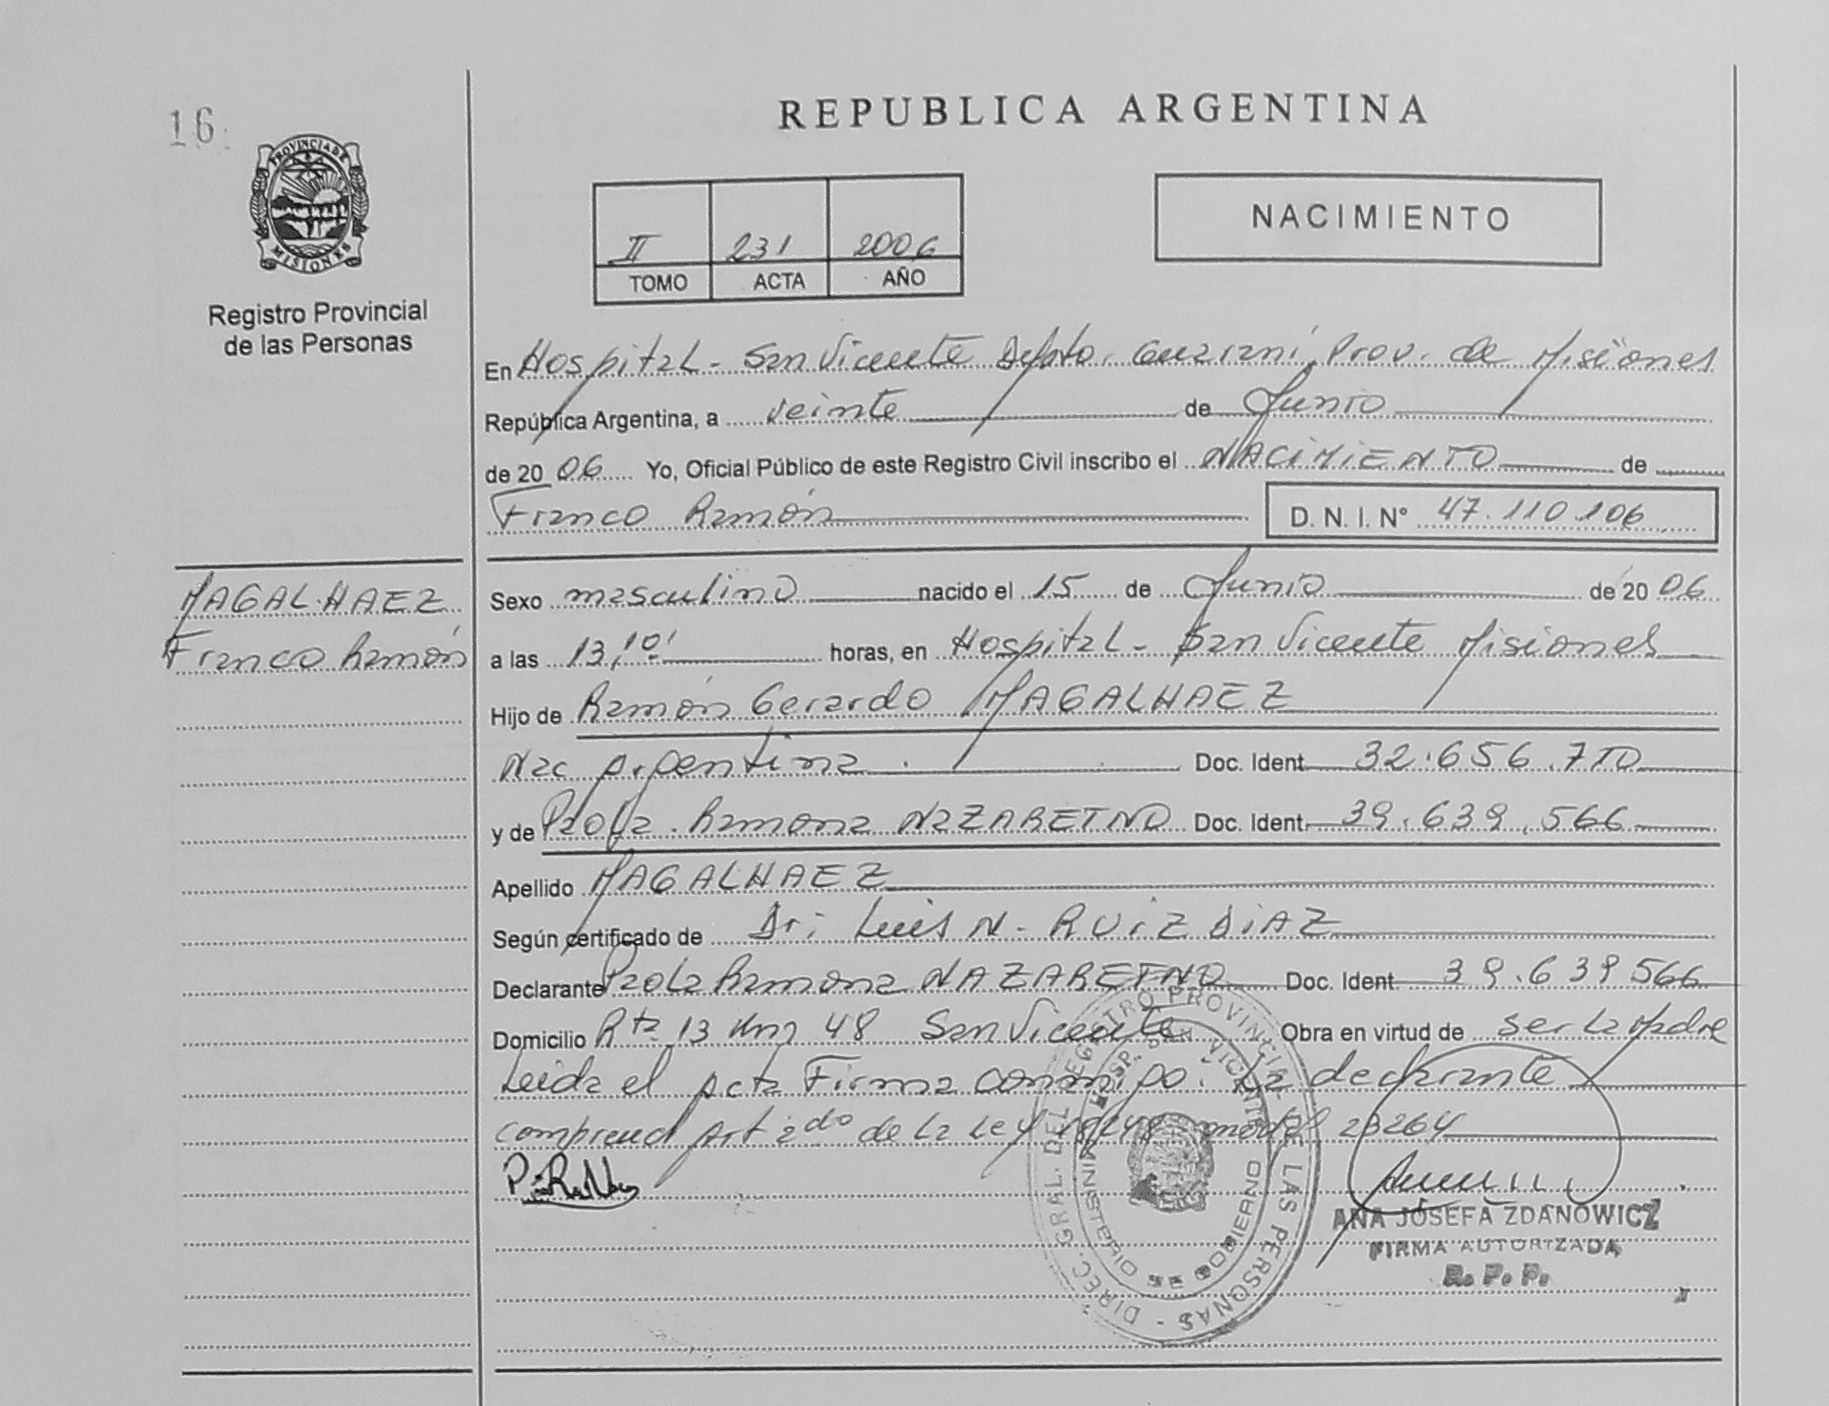 16
PROVINCIA DE
MISIONES
Registro Provincial
de las Personas
REPUBLICA ARGENTINA
II 231 2006
TOMO ACTA AÑO
NACIMIENTO
En Hospital - San Vicente Depto. Guaraní, Prov. de Misiones
República Argentina, a veinte de Junio
de 2006 Yo, Oficial Público de este Registro Civil inscribo el NACIMIENTO de
Franco Ramón D. N. I. N° 47.110.106
MAGALHAEZ
Franco Ramón
Sexo masculino nacido el 15 de Junio de 2006
a las 13,10' horas, en Hospital - San Vicente Misiones
Hijo de Ramón Gerardo MAGALHAEZ
Nac Argentina. Doc. Ident 32.656.710
y de Paola Ramona NAZARETNO Doc. Ident 39.639.566
Apellido MAGALHAEZ
Según certificado de Dr: Luis N. RUIZ DIAZ
Declarante Paola Ramona NAZARETNO Doc. Ident 39.639566
Domicilio Rta 13 Km 48 San Vicente Obra en virtud de ser la Madre
Leida el acta Firma conmigo. La declarante
comprend Art 2do de la Ley 23264
DIREC. GRAL. DEL REGISTRO PROVINCIAL DE LAS PERSONAS
HOSP. SAN VICENTE
MINISTERIO DE GOBIERNO
ANA JOSEFA ZDANOWICZ
FIRMA AUTORIZADA
R. P. P.